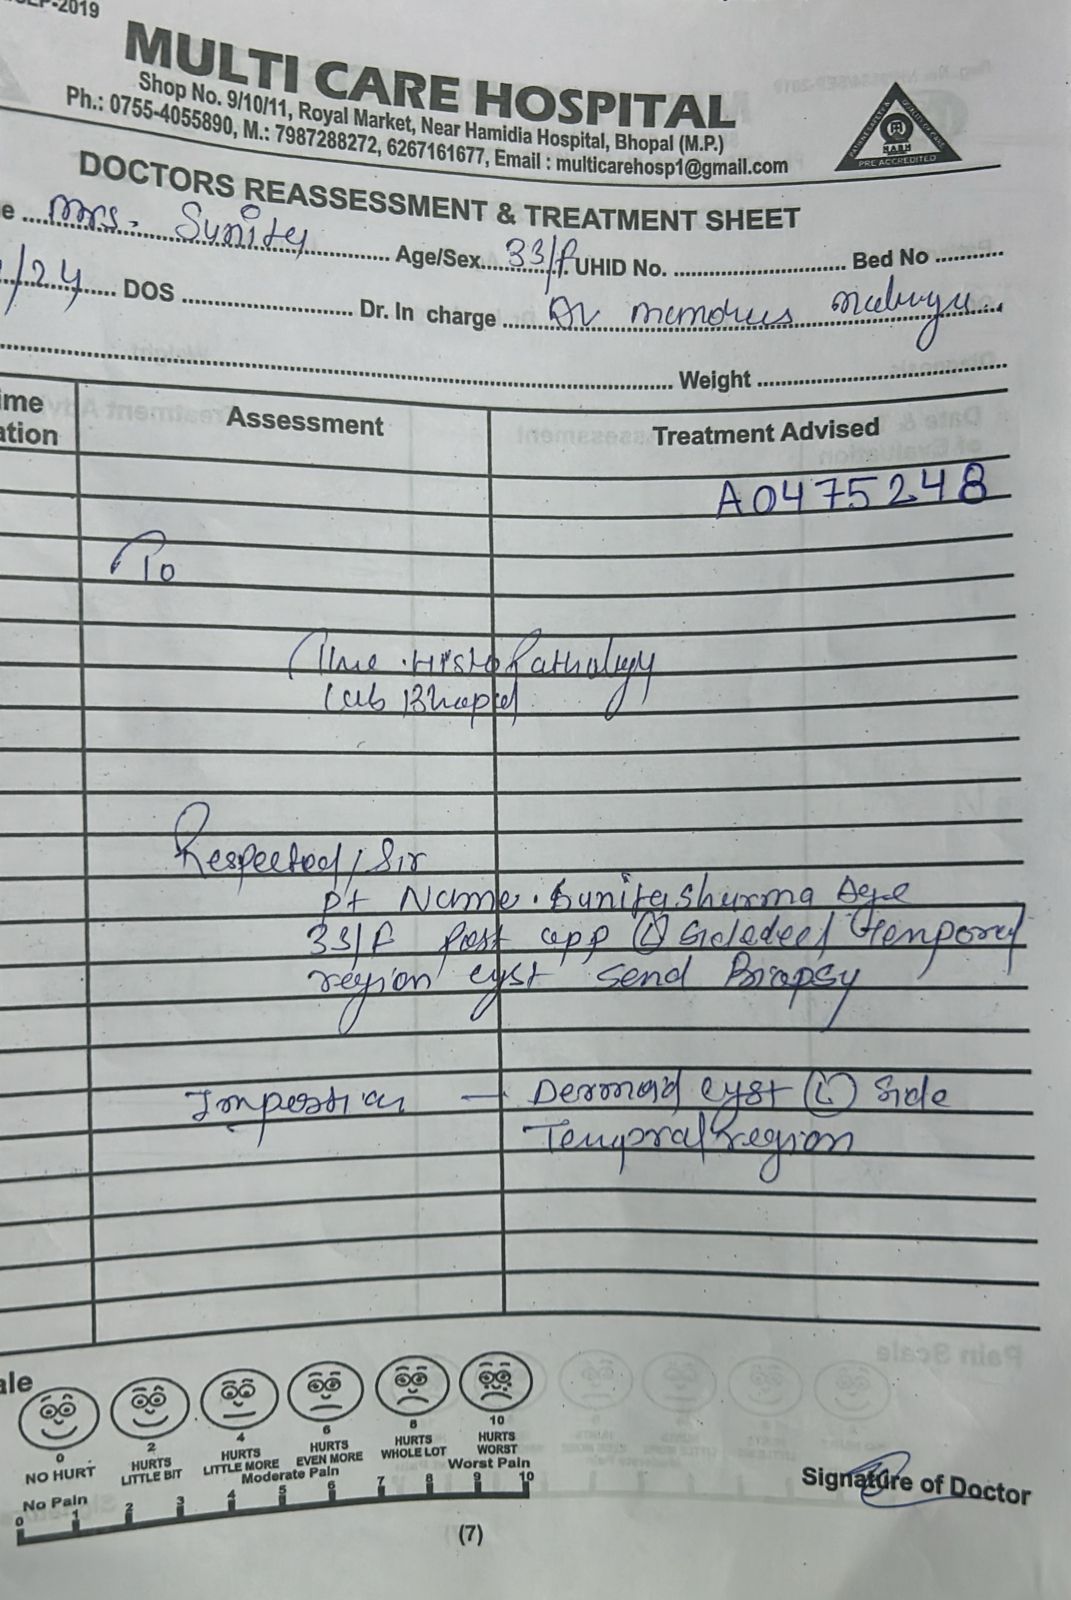 SEP-2019
MULTI CARE HOSPITAL
Shop No. 9/10/11, Royal Market, Near Hamidia Hospital, Bhopal (M.P.)
Ph.: 0755-4055890, M.: 7987288272, 6267161677, Email : multicarehosp1@gmail.com
NABH
PRE ACCREDITED
DOCTORS REASSESSMENT & TREATMENT SHEET
e Mrs. Sunita Age/Sex 33/F UHID No. Bed No
/24 DOS Dr. In charge Dr
Weight
ime
ation
Assessment
Treatment Advised
A0475248
To
The Histo Pathology
Lab Bhopal
Respected/Sir
Pt Name. Sunita Sharma Age
33/F Post opp (L) temporal
region cyst send Biopsy
Dermoid cyst (L) Side
Temporal Region
ale
0
NO HURT
2
HURTS
LITTLE BIT
4
HURTS
LITTLE MORE
6
HURTS
EVEN MORE
8
HURTS
WHOLE LOT
10
HURTS
WORST
No Pain
Moderate Pain
Worst Pain
0 1 2 3 4 5 6 7 8 9 10
Signature of Doctor
(7)